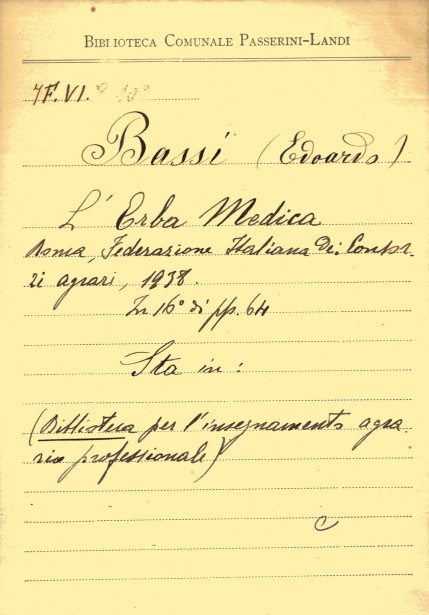 BIBLIOTECA COMUNALE PASSERINI-LANDI
4F.VI.
Bassi (Edoardo)
L'Erba Medica
Roma, Federazione Italiana Dei Consor-
zi agrari, 1938.
In 16° di pp. 64
Sta in:
(Biblioteca per l'insegnamento agra-
rio professionale)
C